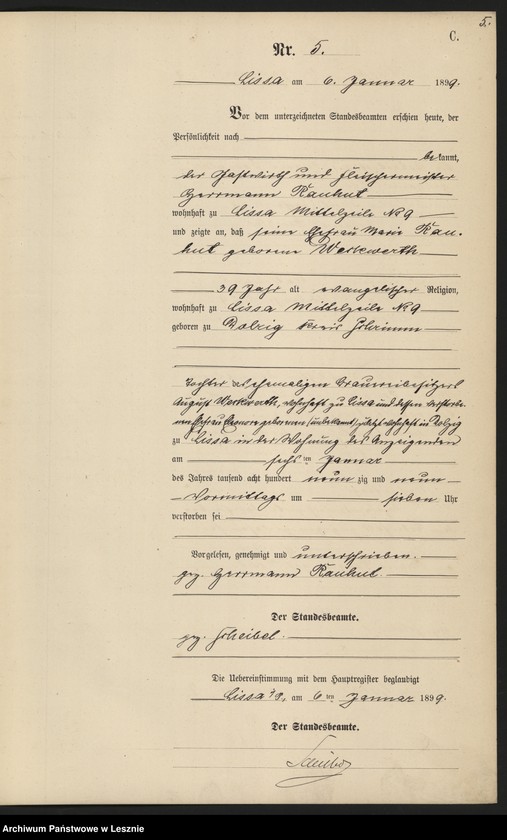 5.
C.
Nr. 5.
Lissa am 6. Januar 1899.
Vor dem unterzeichneten Standesbeamten erschien heute, der
Persönlichkeit nach
bekannt,
der Gastwirth und Fleischermeister
Herrmann Rauhut
wohnhaft zu Lissa Mittelzeile No 9
und zeigte an, daß seine Ehefrau Marie Rau-
hut geborene Werkwerth
39 Jahr alt evangelischer Religion,
wohnhaft zu Lissa Mittelzeile No 9
geboren zu Dolzig Kreis Schrimm
Tochter des ehemaligen Brauereibesitzers
August Werkwerth, wohnhaft zu Lissa und dessen verstorbe-
nen Ehefrau geborenen (unbekannt) zuletzt wohnhaft in Dolzig
zu Lissa in der Wohnung des Anzeigenden
am sechsten Januar
des Jahres tausend acht hundert neun zig und neun
Vormittags um sieben Uhr
verstorben sei
Vorgelesen, genehmigt und unterschrieben.
gez. Herrmann Rauhut
Der Standesbeamte.
gez. Scheibel.
Die Uebereinstimmung mit dem Hauptregister beglaubigt
Lissa am 6ten Januar 1899.
Der Standesbeamte.
Archiwum Państwowe w Lesznie